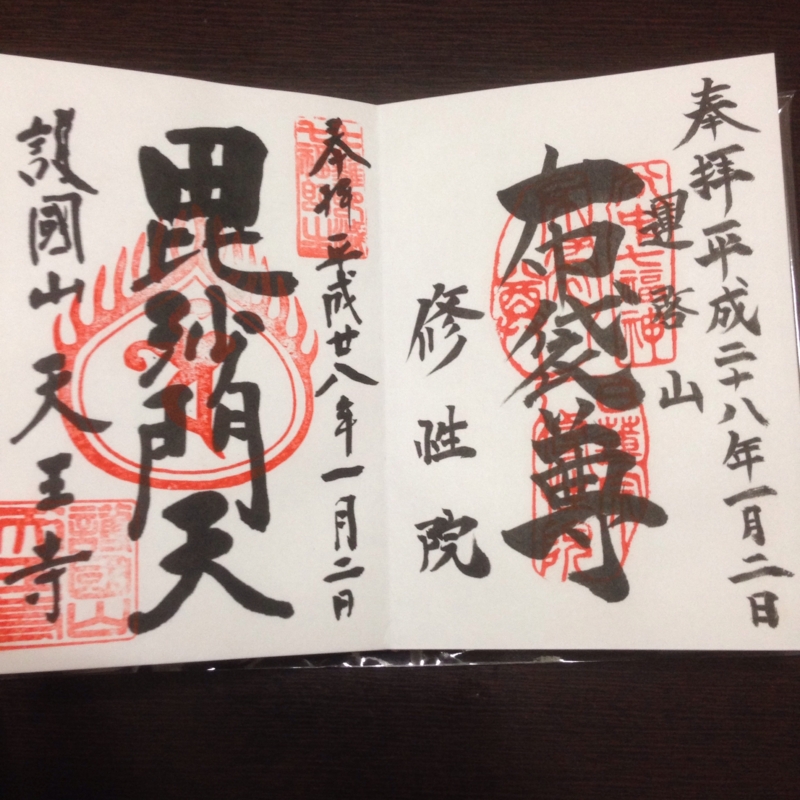 奉拝平成二十八年一月二日
運啓山
布袋尊
修性院
奉拝平成廿八年一月二日
毘沙門天
護國山天王寺
護國山